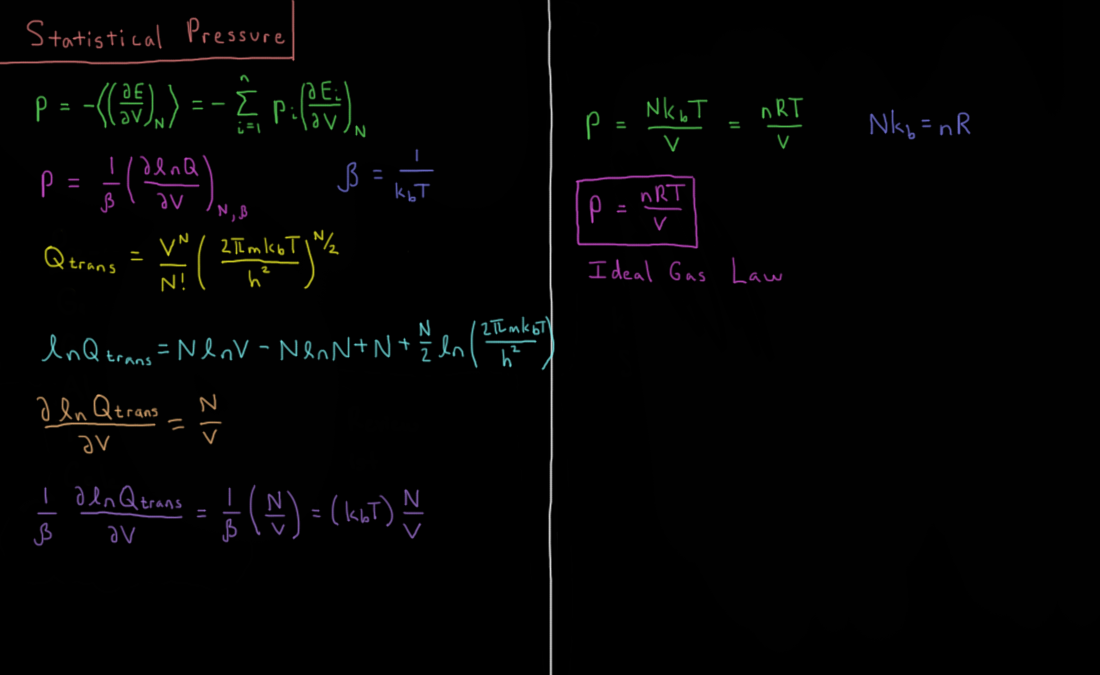 Statistical Pressure
P = -⟨(∂E/∂V)_N⟩ = -∑_{i=1}^{n} p_i (∂E_i/∂V)_N
P = 1/β (∂lnQ/∂V)_{N,β}    β = 1/(k_bT)
Q_trans = V^N/N! (2πmk_bT/h²)^{N/2}
lnQ_trans = NlnV - NlnN + N + N/2 ln(2πmk_bT/h²)
∂lnQ_trans/∂V = N/V
1/β ∂lnQ_trans/∂V = 1/β (N/V) = (k_bT) N/V
P = Nk_bT/V = nRT/V    Nk_b = nR
P = nRT/V
Ideal Gas Law